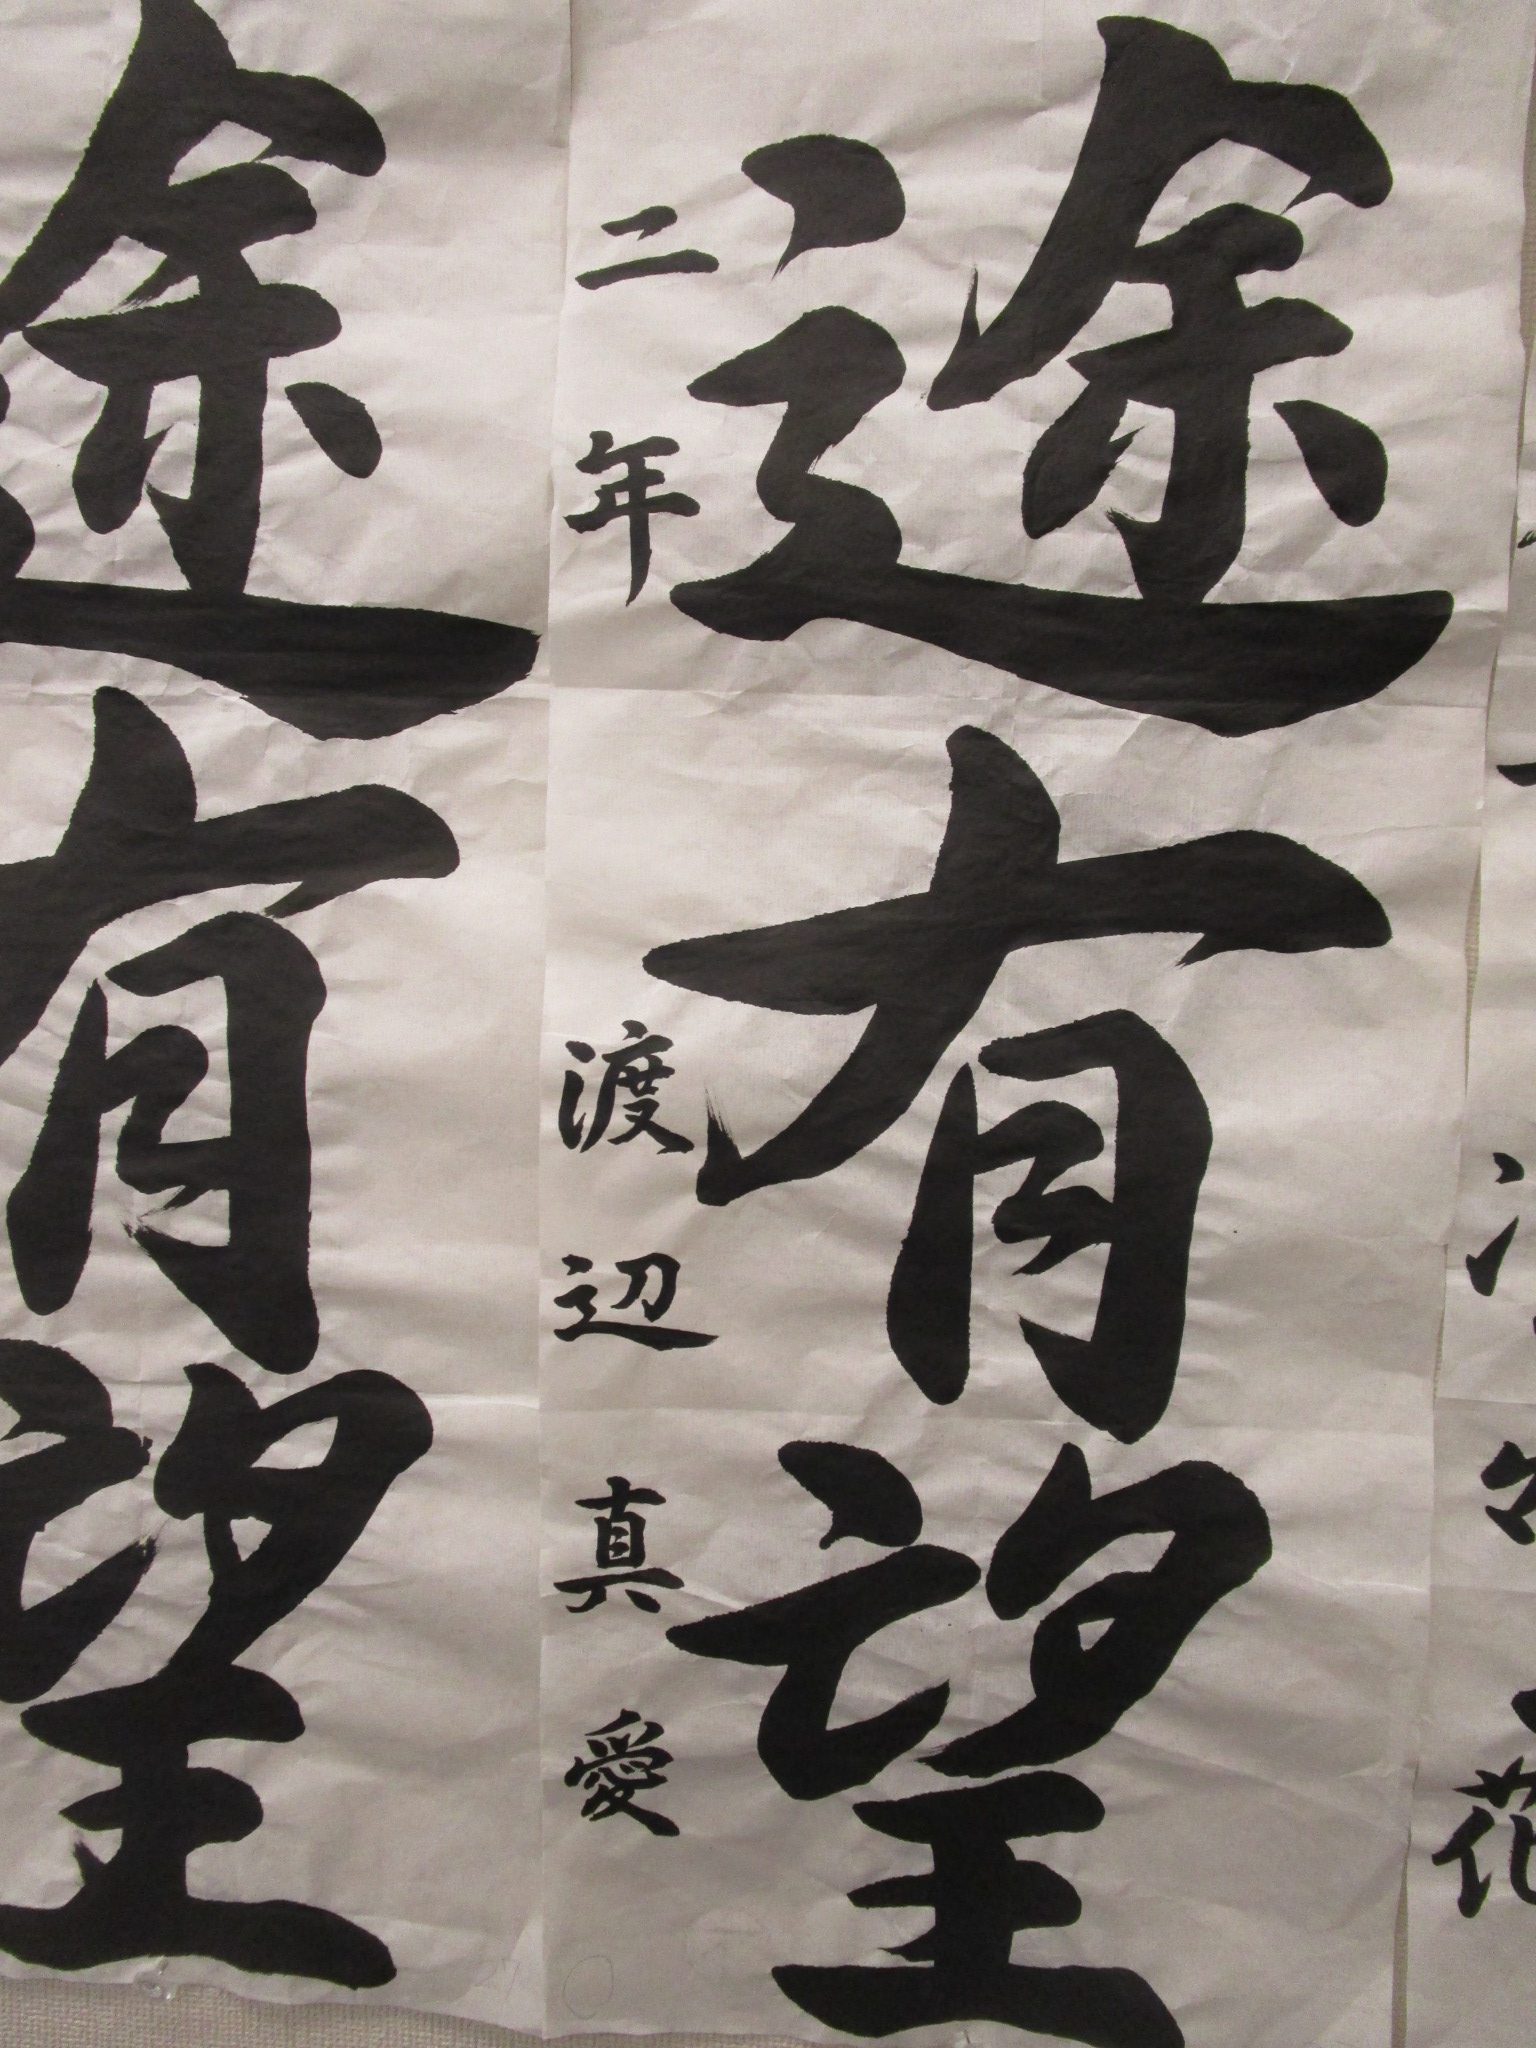 花
途有望
二年 渡辺真愛
途有望